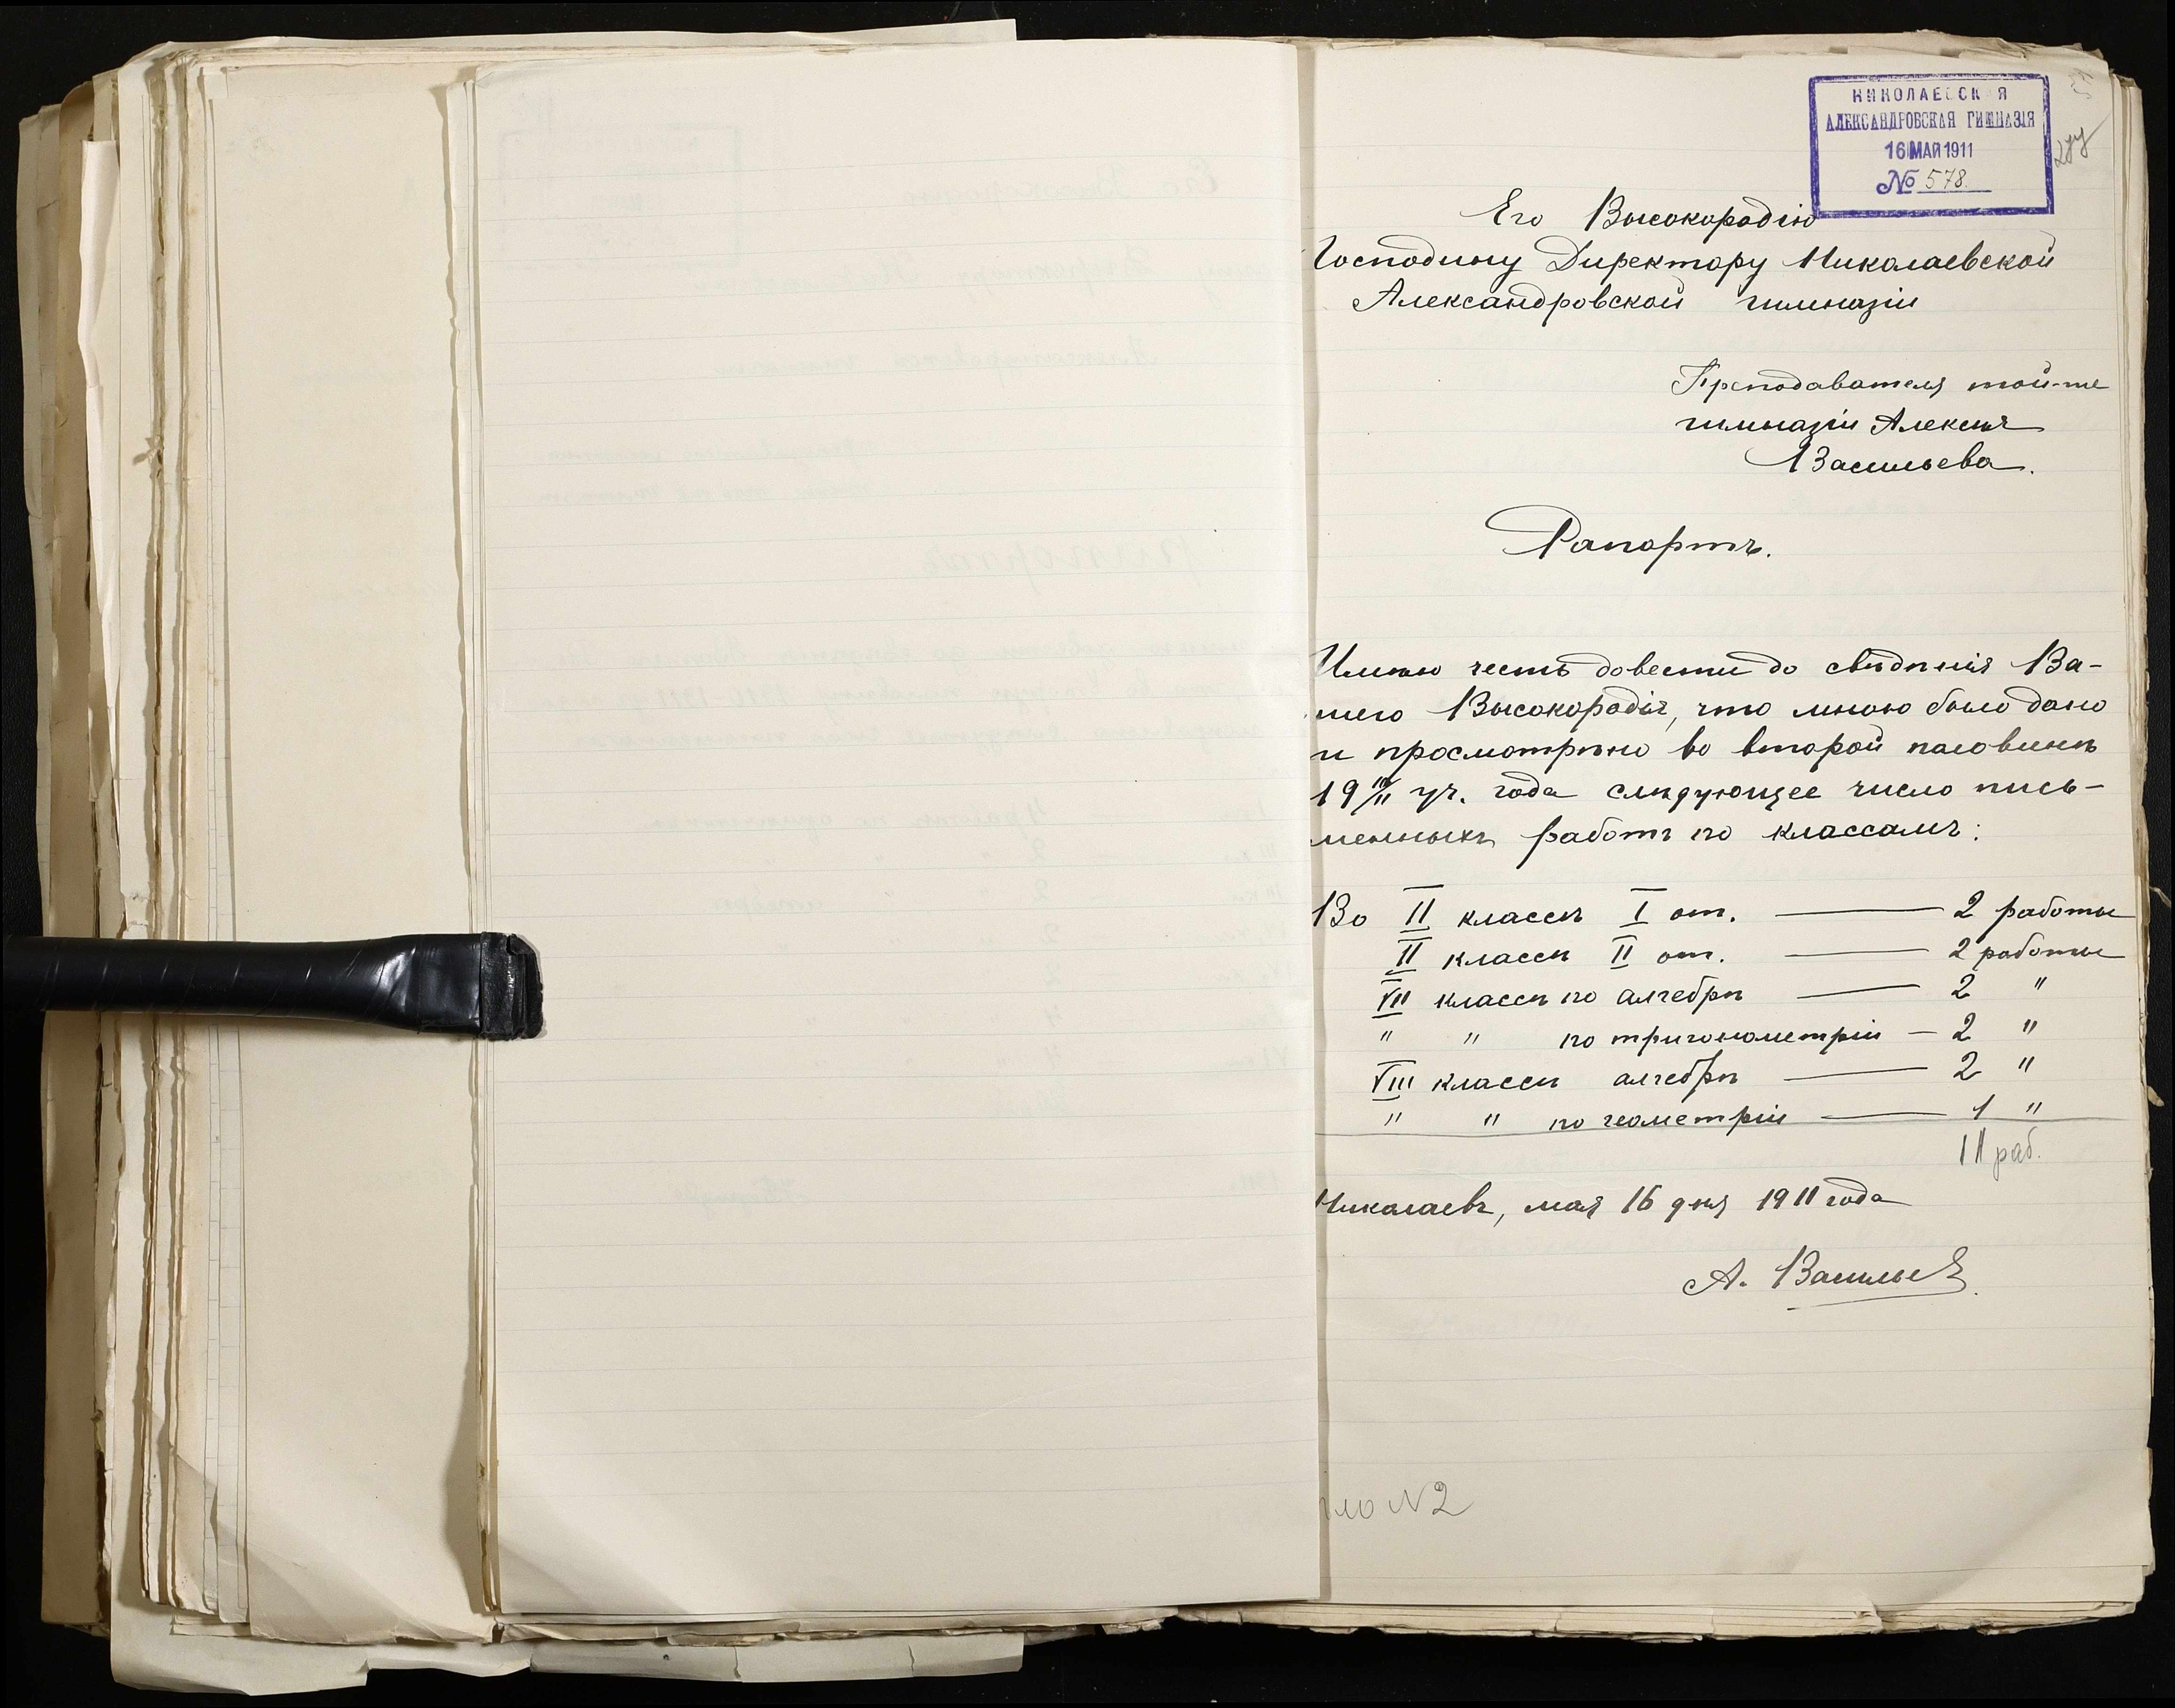 НИКОЛАЕВСКАЯ
АЛЕКСАНДРОВСКАЯ ГИМНАЗІЯ
16 МАЯ 1911
№ 578.
Его Высокородію
Господину Директору Николаевской
Александровской гимназіи
Преподавателя той-же
гимназіи Алексѣя
Васильева.
Рапортъ.
Имѣю честь довести до свѣдѣнія Ва-
шего Высокородія, что мною было дано
и просмотрѣно во второй половинѣ
19 10/11 уч. года слѣдующее число пись-
менныхъ работъ по классамъ:
Во II классѣ I от. — 2 работы
II классѣ II от. — 2 работы
VII классѣ по алгебрѣ — 2 "
" " по тригонометріи — 2 "
VIII классѣ алгебрѣ — 2 "
" " по геометріи — 1 "
11 раб.
Николаевъ, мая 16 дня 1911 года
А. Васильев
№ 2